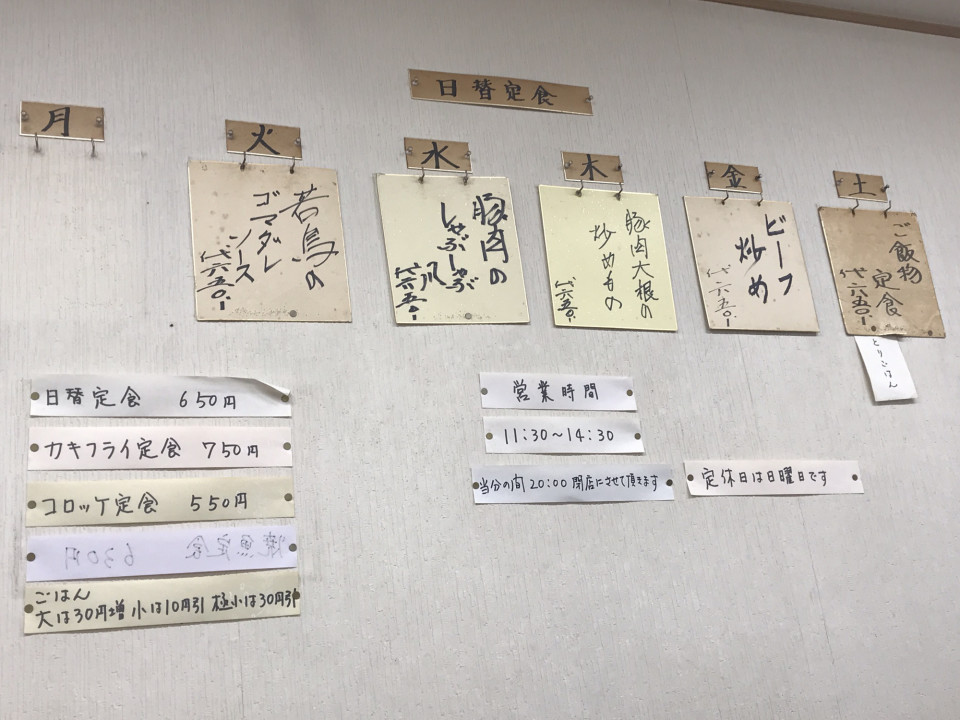 日替定食
月
火
若鳥の
ゴマダレ
ソース
代六五〇.ー
水
豚肉の
しゃぶしゃぶ
風
代六五〇.ー
木
豚肉大根の
炒めもの
代六五〇.ー
金
ビーフ
炒め
代六五〇.ー
土
ご飯物
定食
代六五〇.ー
とりごはん
日替定食 650円
カキフライ定食 750円
コロッケ定食 550円
焼魚定食 630円
ごはん
大は30円増 小は10円引 極小は30円引
営業時間
11:30～14:30
当分の間 20:00 閉店にさせて頂きます
定休日は日曜日です